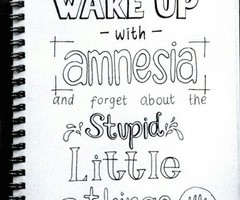 WAKE UP
- with -
amnesia
and forget about the
Stupid
Little
things